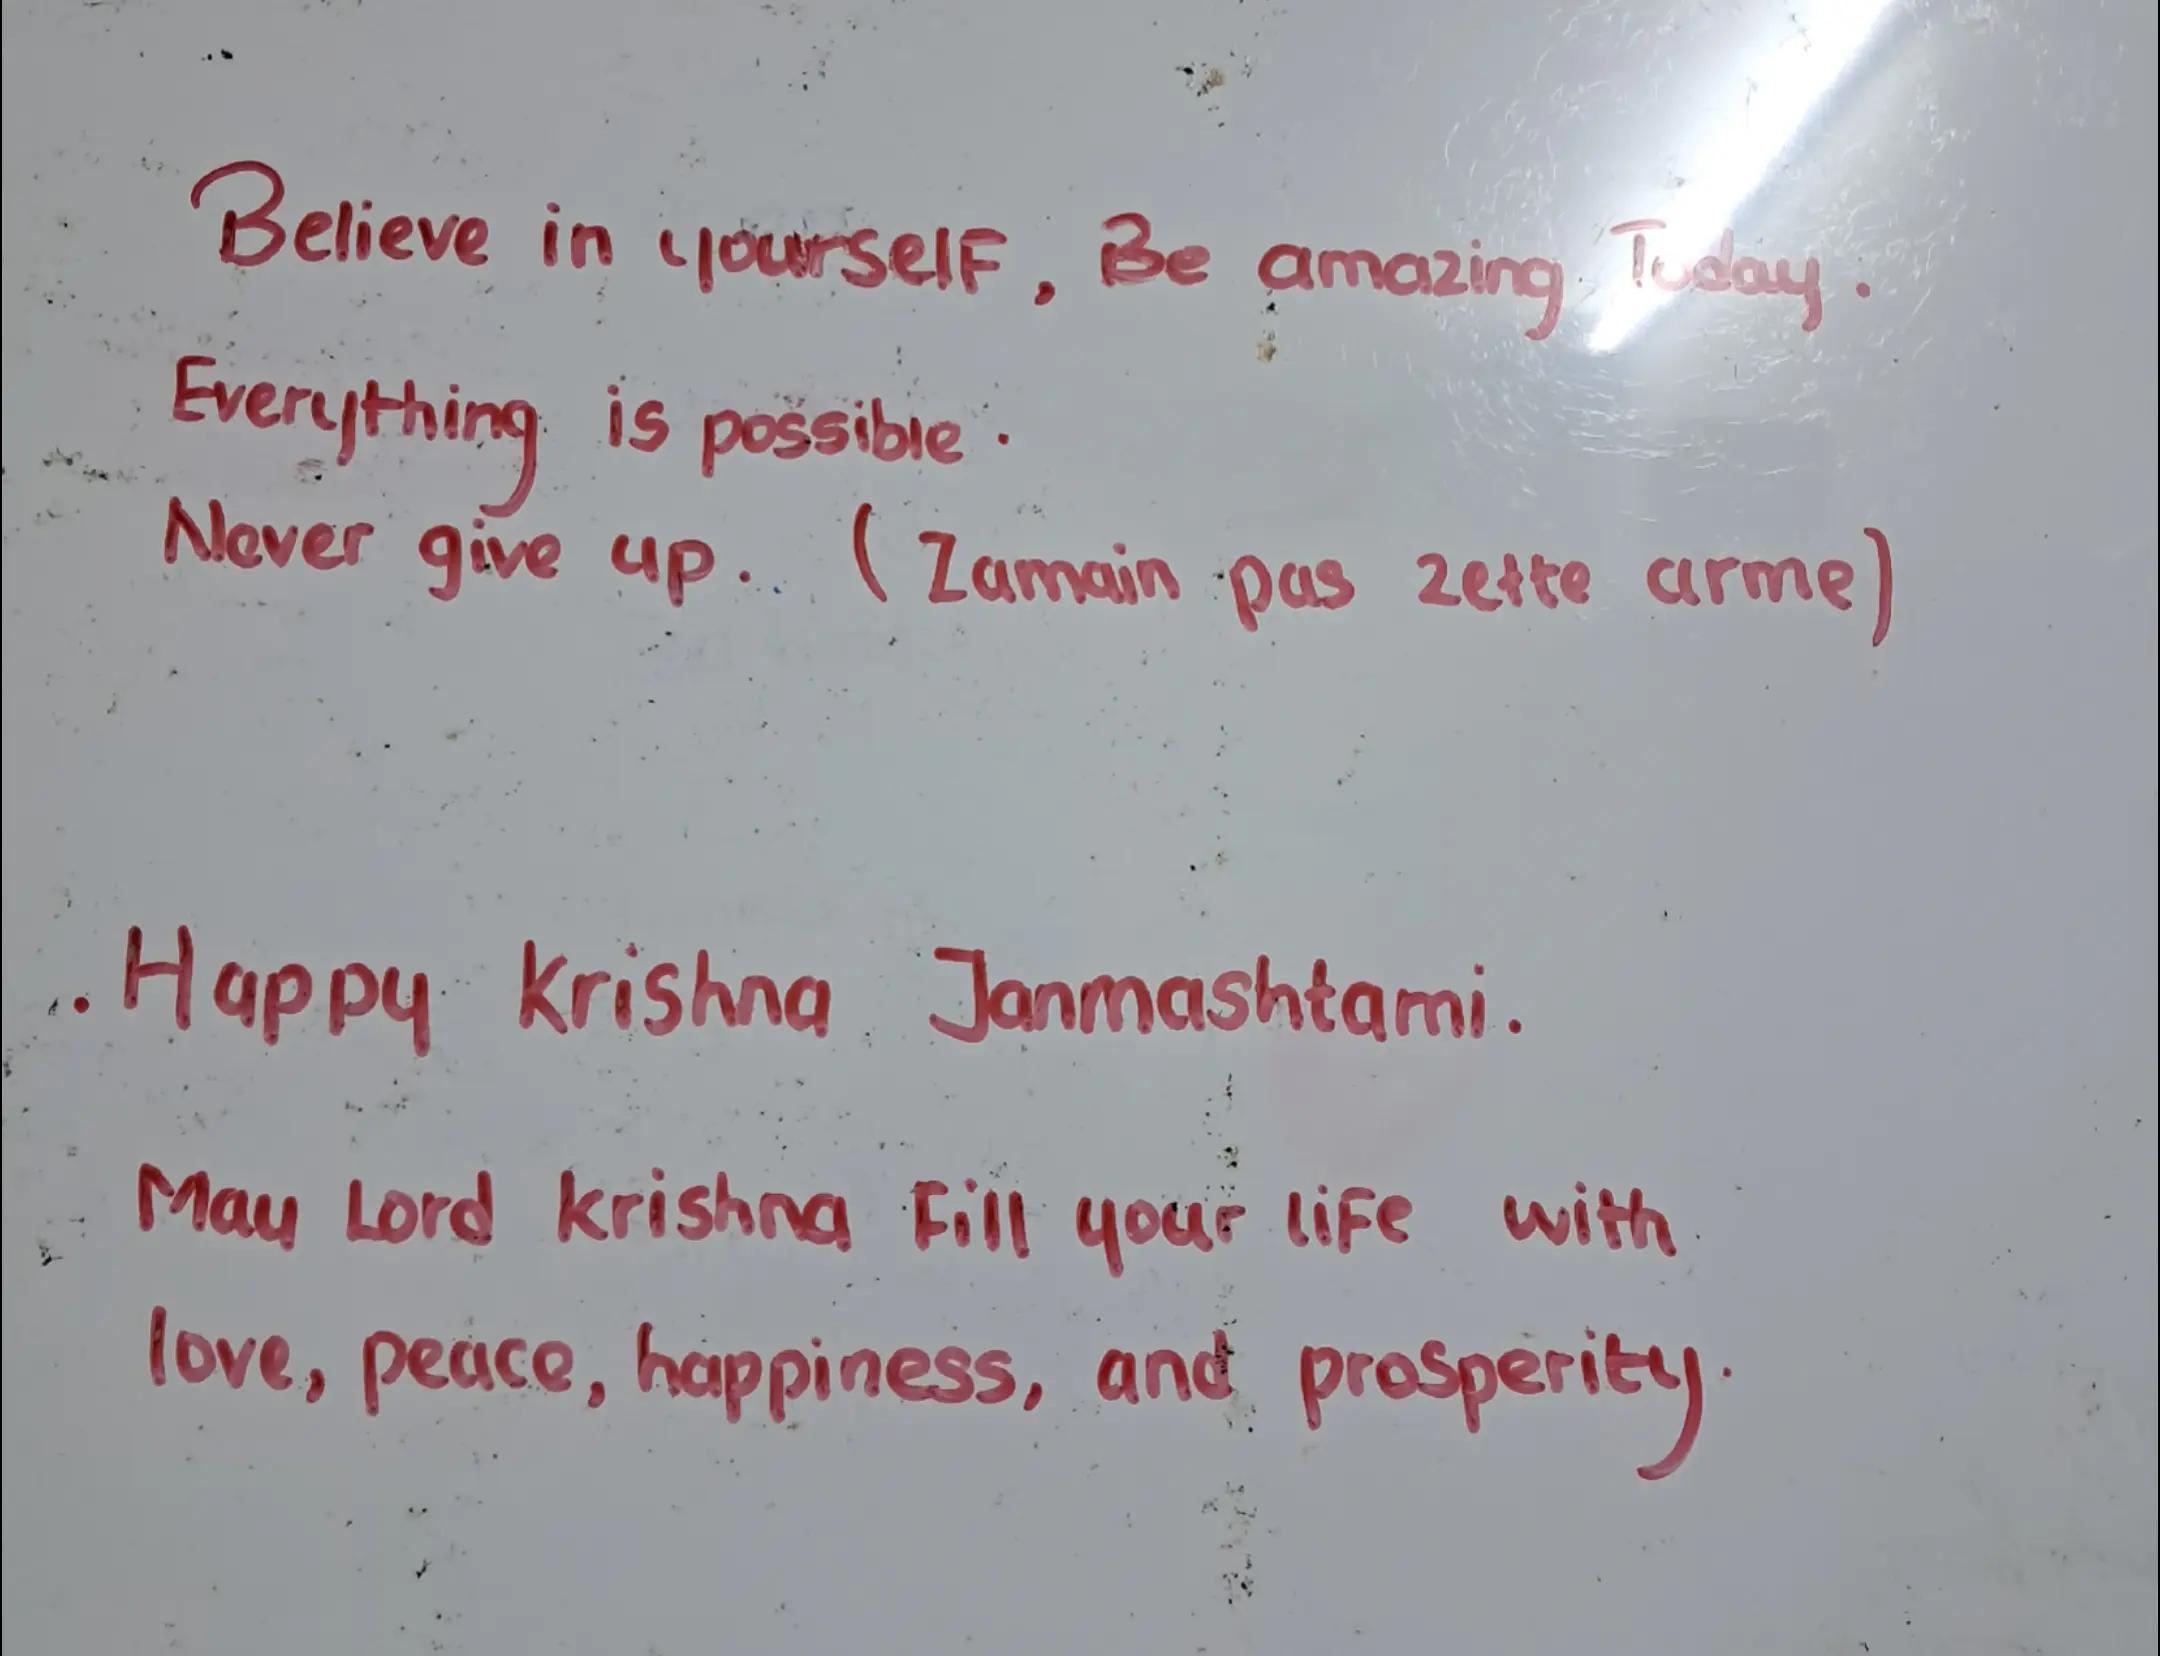 Believe in yourself, Be amazing Today.
Everything is possible.
Never give up. (Zamain pas zette arme)
. Happy Krishna Janmashtami.
May Lord Krishna Fill your liFe with
love, peace, happiness, and prosperity.